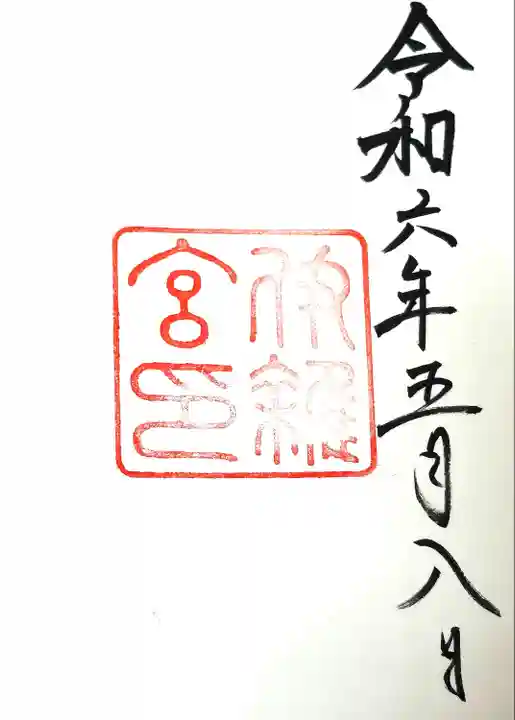 令和六年五月八日
宮印